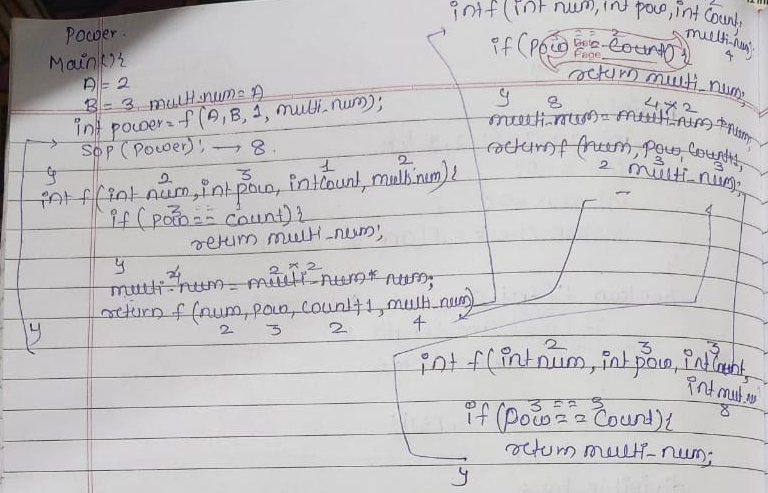 Power.
Main(){
A=2
B=3 multi-num=A
int power=f(A,B,1,multi-num);
SOP(Power); → 8.
}
2 3 1 2
int f(int num,int pow,int count,multi-num){
3 ==
if(pow== count){
return multi-num;
}
4 2*2
multi-num=multi-num* num;
return f(num,pow,count+1,multi-num)
2 3 2 4
}
2
int f(int num,int pow,int count,
multi-num)
4
3 == 2
if(pow == count){
Page
return multi-num;
}
8 4*2
multi-num=multi-num*num;
return f(num,pow,count+1,
2 3 3
multi-num);
2 3 3
int f(int num,int pow,int count,
int
8
3 == 3
if(pow== count){
return multi-num;
}